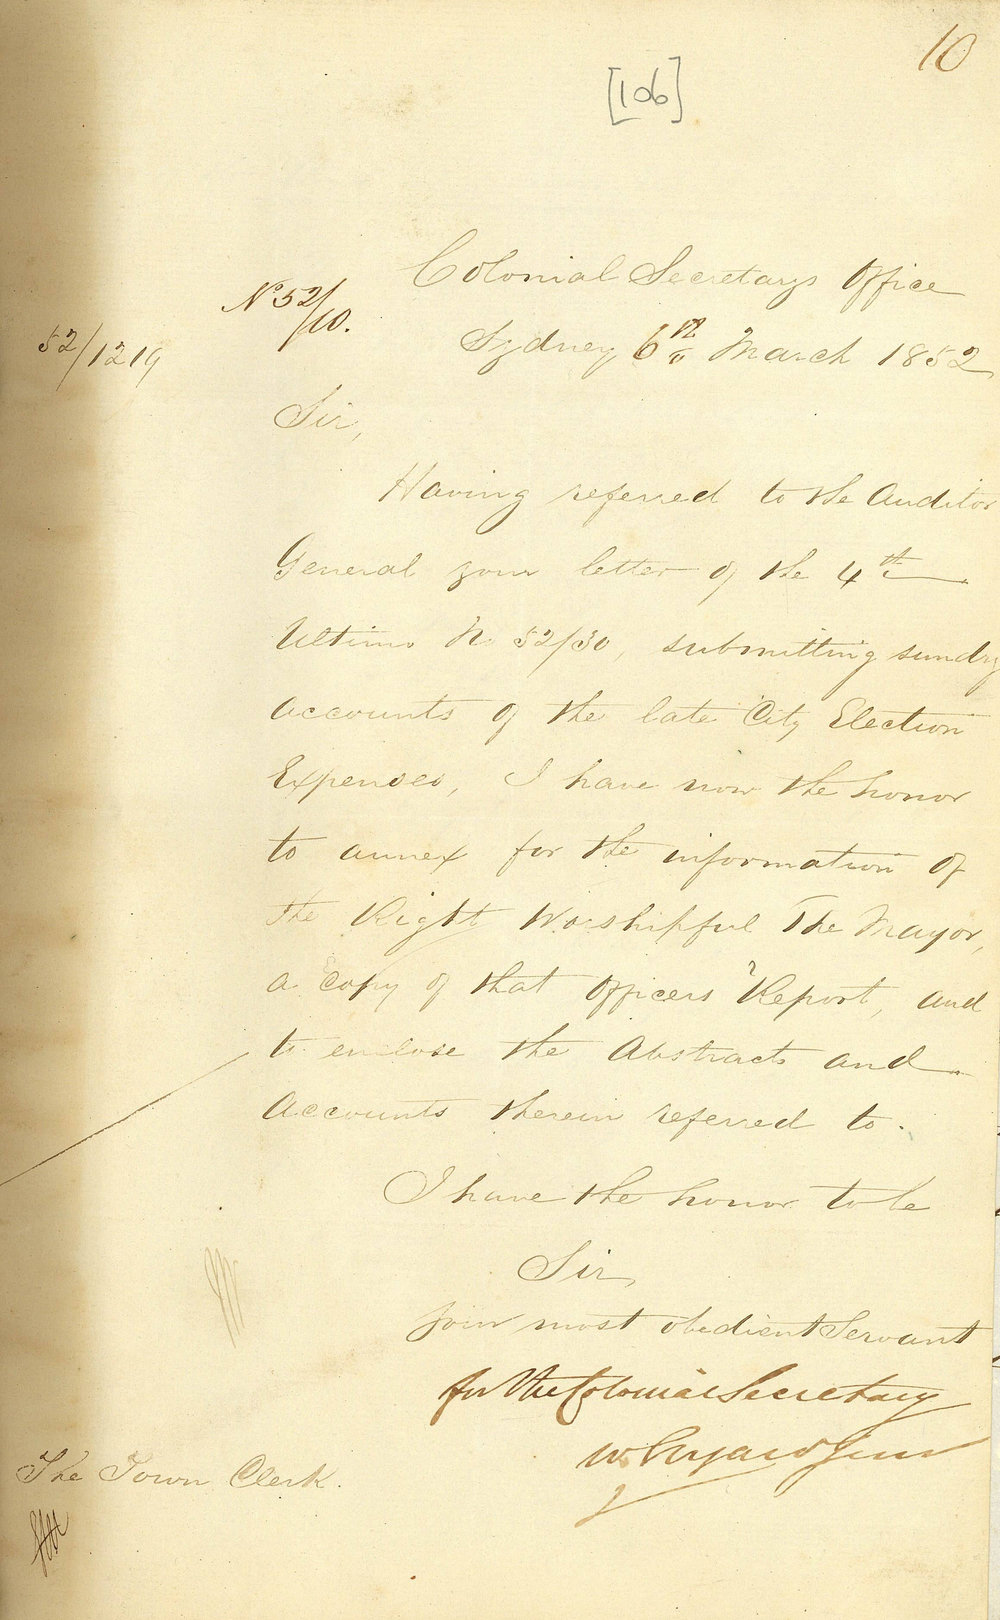 10
[106]
Colonial Secretarys Office
No 52/10.
52/1219
Sydney 6th March 1852
Sir,
Having referred to the Auditor
General your letter of the 4th
Ultimo No 52/30, submitting sundry
accounts of the late City Election
Expenses, I have now the honor
to annex for the information of
the Right Worshipful The Mayor,
a copy of that Officers Report, and
to enclose the Abstracts and
Accounts therein referred to.
I have the honor to be
Sir,
your most obedient Servant
for the Colonial Secretary
W.
The Town Clerk.